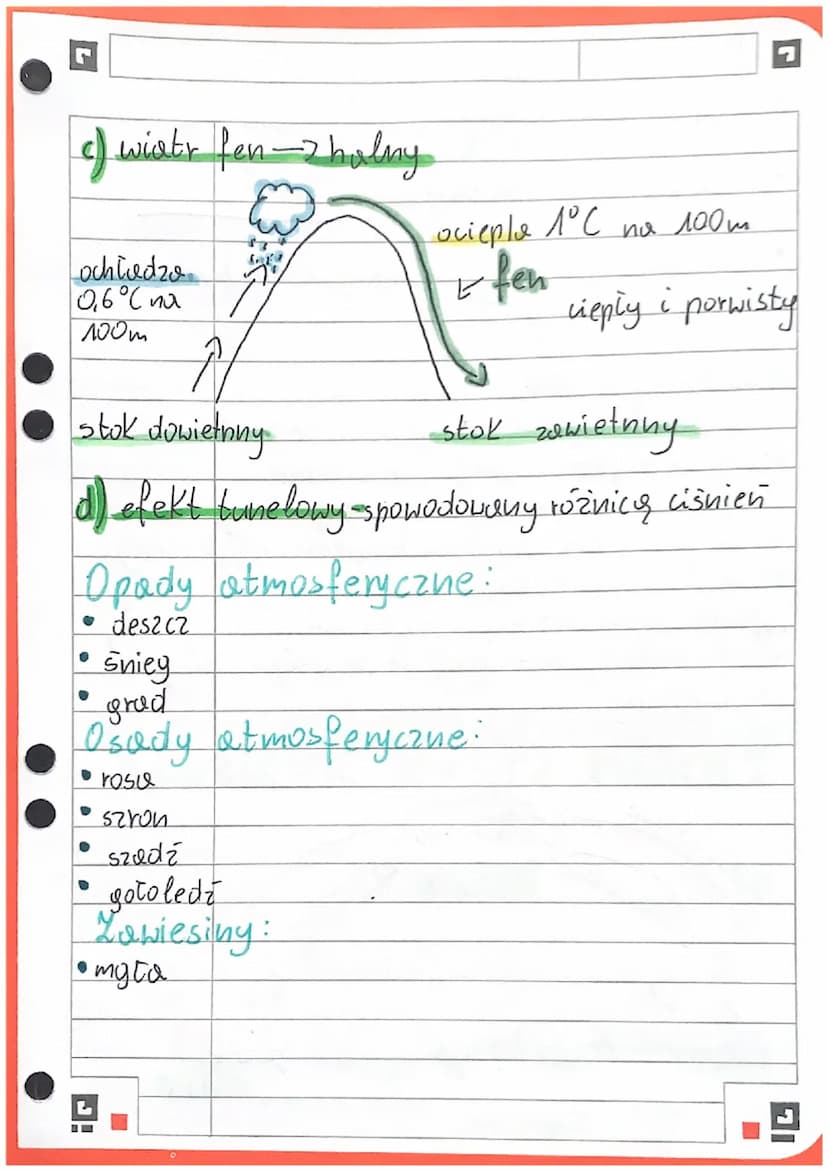 c) wiatr fen → halny
ociepla 1°C na 100m
ochładza
0,6°C na
100m
← fen
ciepły i porwisty
stok dowietrzny
stok zawietrzny
d) efekt tunelowy - spowodowany różnicą ciśnień
Opady atmosferyczne:
• deszcz
• śnieg
• grad
Osady atmosferyczne:
• rosa
• szron
• szadź
• gołoledź
Zawiesiny:
• mgła